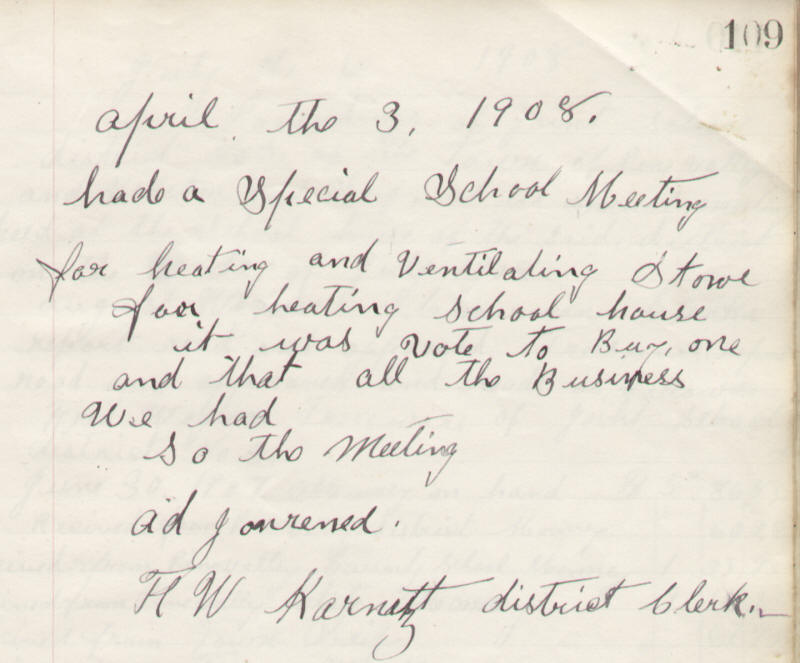 109
april the 3, 1908.
hade a Special School Meeting
for heating and Ventilating Stowe
foor heating School house
it was vote to Buy, one
and that all the Business
We had
So the Meeting
adjourened.
H W district Clerk.